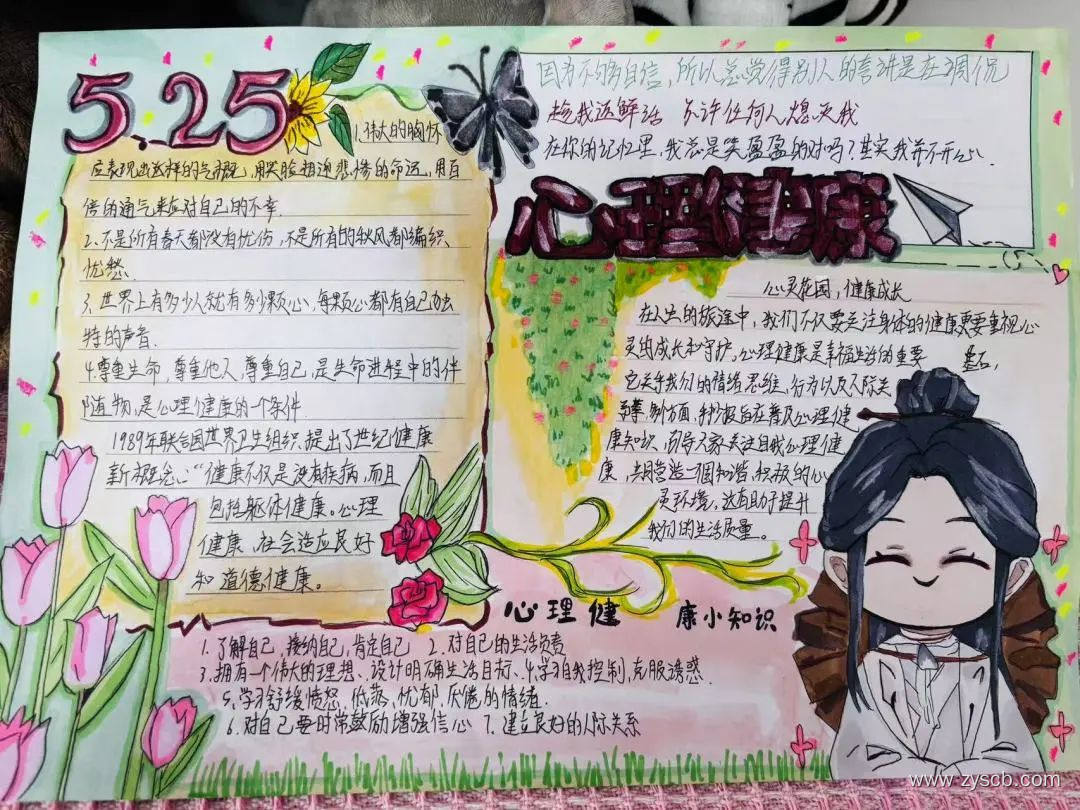 5.25
1.伟大的胸怀
应表现出这样的气概,用笑脸相迎悲惨的命运,用百
倍的通气来应对自己的不幸.
2、不是所有春天都没有忧伤,不是所有的秋风都编织
忧愁
3、世界上有多少人就有多少颗心,每颗心都有自己独
特的声音.
4.尊重生命,尊重他人,尊重自己,是生命进程中的伴
随物,是心理健康的一个条件
1989年联合国世界卫生组织,提出了世纪健康
新概念、“健康不仅是没有疾病,而且
包括躯体健康。心理
健康、社会适应良好
和道德健康。
因为不够自信,所以总觉得别人的夸讲是在调侃
趁我还鲜活 不许任何人熄灭我
在你的记忆里,我总是笑盈盈的对吗?其实我并不开心.
心理健康
心灵花园,健康成长
在人生的旅途中,我们不仅要关注身体的健康更要重视心
灵的成长和守护,心理健康是幸福生活的重要 基石,
它关乎我们的情绪思维,行为以及人际关
系等,多个方面,积极自在普及心理健
康知识,向每大家关注自我心理健
康,共同营造一個和谐,积极的心
灵环境,这有助于提升
我们的生活质量。
心理健 康小知识
1.了解自己,接纳自己,肯定自己 2.对自己的生活负责
3.拥有一个伟大的理想、设计明确生活目标、4.学习自我控制,克服诱惑.
5、学习舒缓愤怒,低落,忧郁,厌倦的情绪.
6.对自己要时常鼓励增强信心 7.建立良好的人际关系
www.zyscb.com